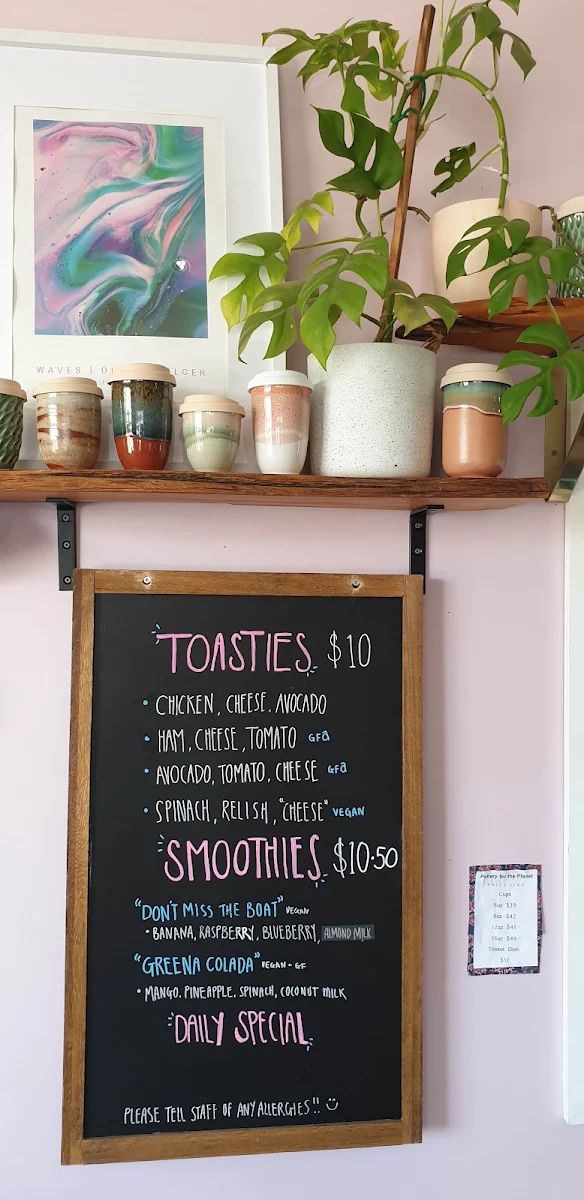 WAVES | 
TOASTIES $10
• CHICKEN, CHEESE, AVOCADO
• HAM, CHEESE, TOMATO GFa
• AVOCADO, TOMATO, CHEESE GFa
• SPINACH, RELISH, "CHEESE" VEGAN
SMOOTHIES $10.50
"DON'T MISS THE BOAT" VEGAN
• BANANA, RASPBERRY, BLUEBERRY, ALMOND MILK
"GREENA COLADA" VEGAN + GF
• MANGO, PINEAPPLE, SPINACH, COCONUT MILK
DAILY SPECIAL
PLEASE TELL STAFF OF ANY ALLERGIES!! ☺
Pottery for the Planet
PRICE LIST
Cups
6oz $39
8oz $42
12oz $45
16oz $49
Trinket Dish
$12